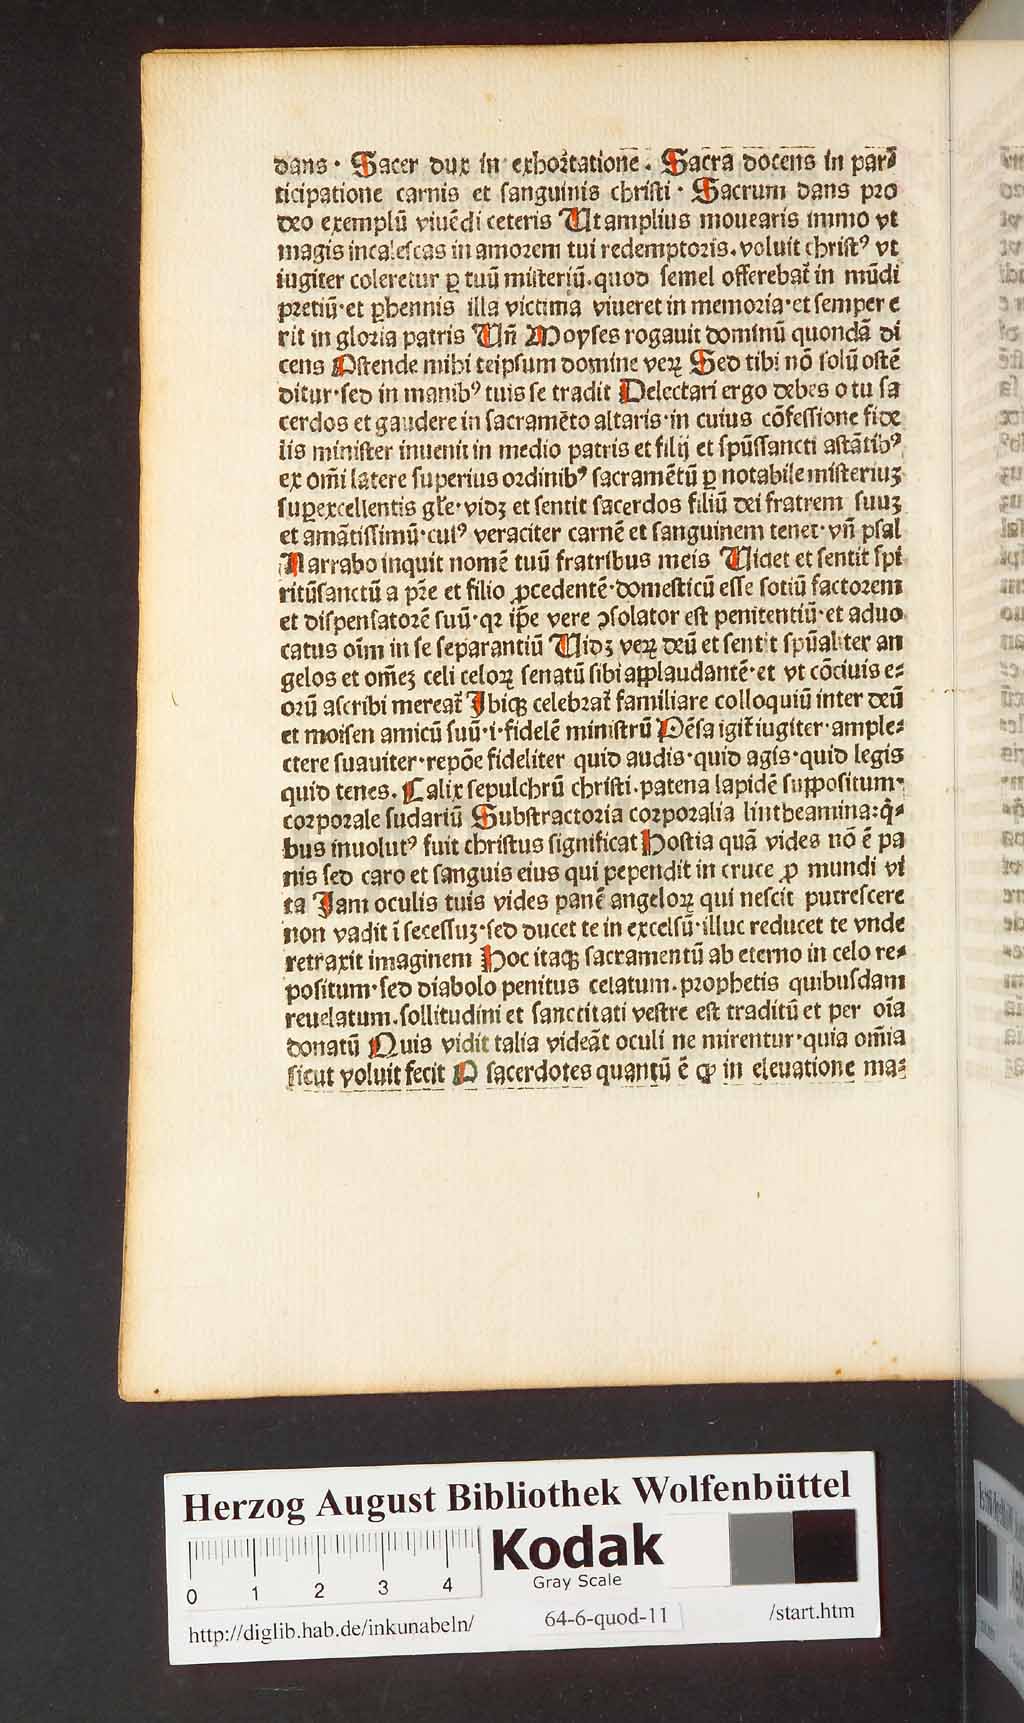 dans · Sacer dux in exhortatione . Sacra docens in par⸗
ticipatione carnis et sanguinis christi · Sacrum dans pro
deo exemplū viuēdi ceteris Ut amplius mouearis immo vt
magis incalescas in amorem tui redemptoris . voluit christꝰ vt
iugiter coleretur ꝑ tuū misteriū . quod semel offerebat̄ in mūdi
pretiū · et ꝑhennis illa victima viueret in memoria · et semper e
rit in gloria patris Un̄ Moyses rogauit dominū quondā di
cens Ostende mihi teipsum domine veꝝ Sed tibi nō solū ostē
ditur · sed in manibꝰ tuis se tradit Delectari ergo debes o tu sa
cerdos et gaudere in sacramēto altaris · in cuius cōfessione fide
lis minister inuenit in medio patris et filij et spūssancti astātibꝰ
ex om̄i latere superius ordinibꝰ sacramētū ꝑ notabile misteriuꝫ
suꝑexcellentis gl̄e · vidꝫ et sentit sacerdos filiū dei fratrem suuꝫ
et amātissimū · cuiꝰ veraciter carnē et sanguinem tenet · vn̄ psal
Narrabo inquit nomē tuū fratribus meis Uidet et sentit spi
ritūsanctū a pr̄e et filio ꝓcedentē · domesticū esse sotiū factorem
et dispensatorē suū · qꝛ ip̄e vere ꝯsolator est penitentiū · et aduo
catus oim̄ in se separantiū Uidꝫ veꝝ deū et sentit spūaliter an
gelos et om̄eꝫ celi celoꝝ senatū sibi applaudantē · et vt cōciuis e⸗
orū ascribi mereat̄ Ibiqꝫ celebrat̄ familiare colloquiū inter deū
et moisen amicū suū · i · fidelē ministrū Pēsa igit̄ iugiter · ample⸗
ctere suauiter · repōe fideliter quid audis · quid agis · quid legis
quid tenes . Calix sepulchrū christi . patena lapidē suppositum ·
corporale sudariū Substractoria corporalia lintheamina : q̄⸗
bus inuolutꝰ fuit christus significat Hostia quā vides nō ē pa
nis sed caro et sanguis eius qui pependit in cruce ꝓ mundi vi
ta Iam oculis tuis vides panē angeloꝝ qui nescit putrescere
non vadit ī secessuꝫ · sed ducet te in excelsū · illuc reducet te vnde
retraxit imaginem Hoc itaqꝫ sacramentū ab eterno in celo re⸗
positum · sed diabolo penitus celatum . prophetis quibusdam
reuelatum . sollitudini et sanctitati vestre est traditū et per oīa
donatū Quis vidit talia videāt oculi ne mirentur · quia om̄ia
sicut voluit fecit O sacerdotes quantū ē ꝙ in eleuatione ma⸗
Herzog August Bibliothek Wolfenbüttel
Kodak
Gray Scale
0 1 2 3 4
http://diglib.hab.de/inkunabeln/ 64-6-quod-11 /start.htm